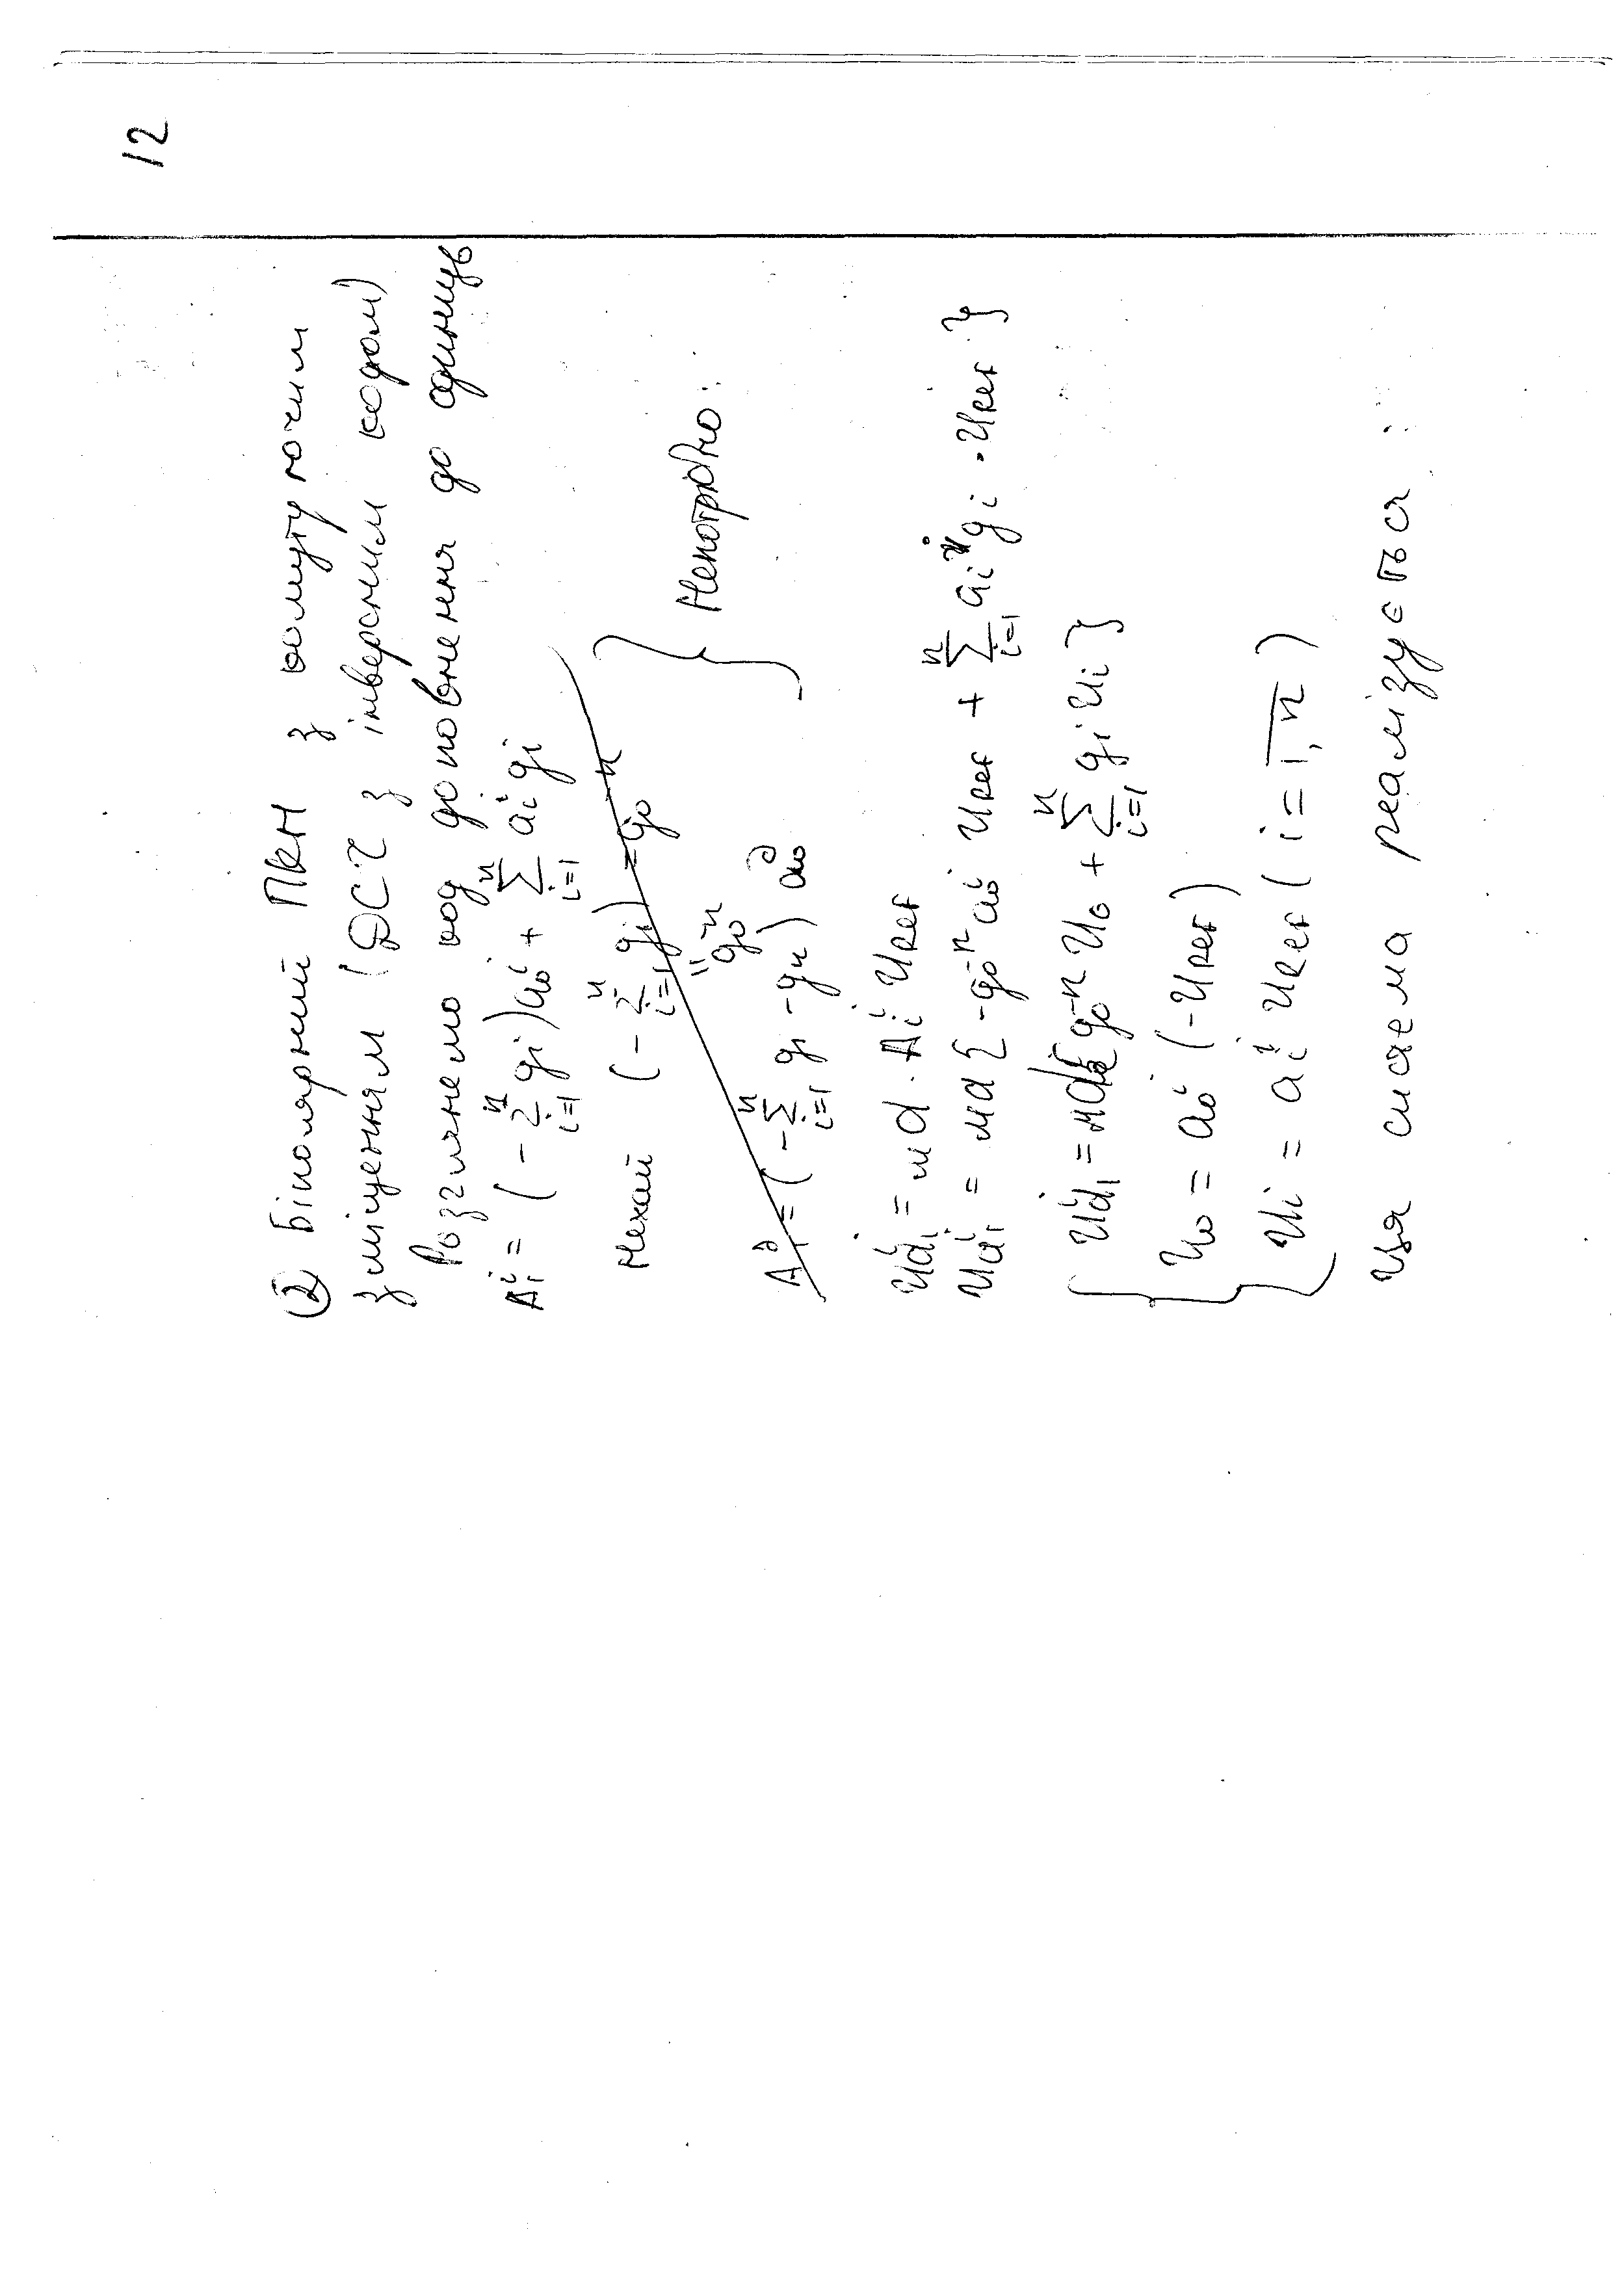 12
② Біполярний ПКН з комутуючим
зміщенням (ДСЧ з інверсним кодом)
Розглянемо код доповнення до одиниць
A₁ⁱ = (-∑ᵢ₌₁ⁿ gi)a₀ⁱ + ∑ᵢ₌₁ⁿ aiⁱ gi
Нехай (-∑ᵢ₌₁ⁿ gi) = g₀⁻ⁿ
Непотрібно:
" g₀⁻ⁿ
A₁ᵈ = (-∑ᵢ₌₁ⁿ gi - gn) a₀ᵈ
Ud₁ⁱ = md · Aiⁱ URef
Ud₁ⁱ = md { -g₀⁻ⁿ a₀ⁱ URef + ∑ᵢ₌₁ⁿ aiⁱ gi · URef }
Ud₁ⁱ = md { g₀⁻ⁿ U₀ + ∑ᵢ₌₁ⁿ gi Ui }
U₀ = a₀ⁱ (-URef)
Ui = aiⁱ URef ( i = 1,n )
Ця схема реалізується :